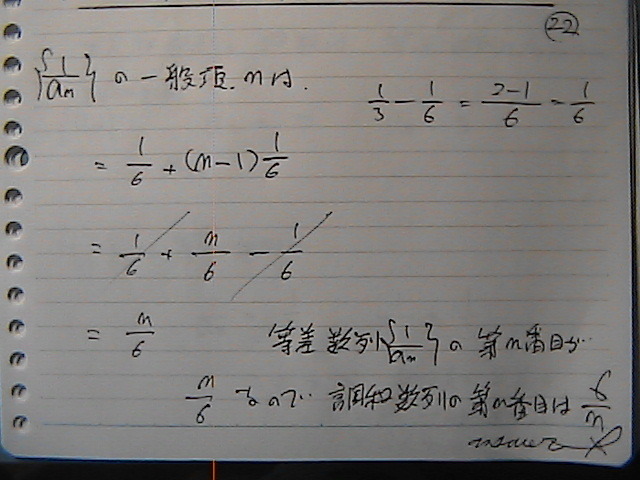 22
{1/an} の一般項 nは.
1/3 - 1/6 = 2-1/6 = 1/6
= 1/6 + (n-1) 1/6
= 1/6 + n/6 - 1/6
= n/6
等差数列{1/an}の第n番目が
n/6 なので 調和数列の第n番目は 6/n
answer